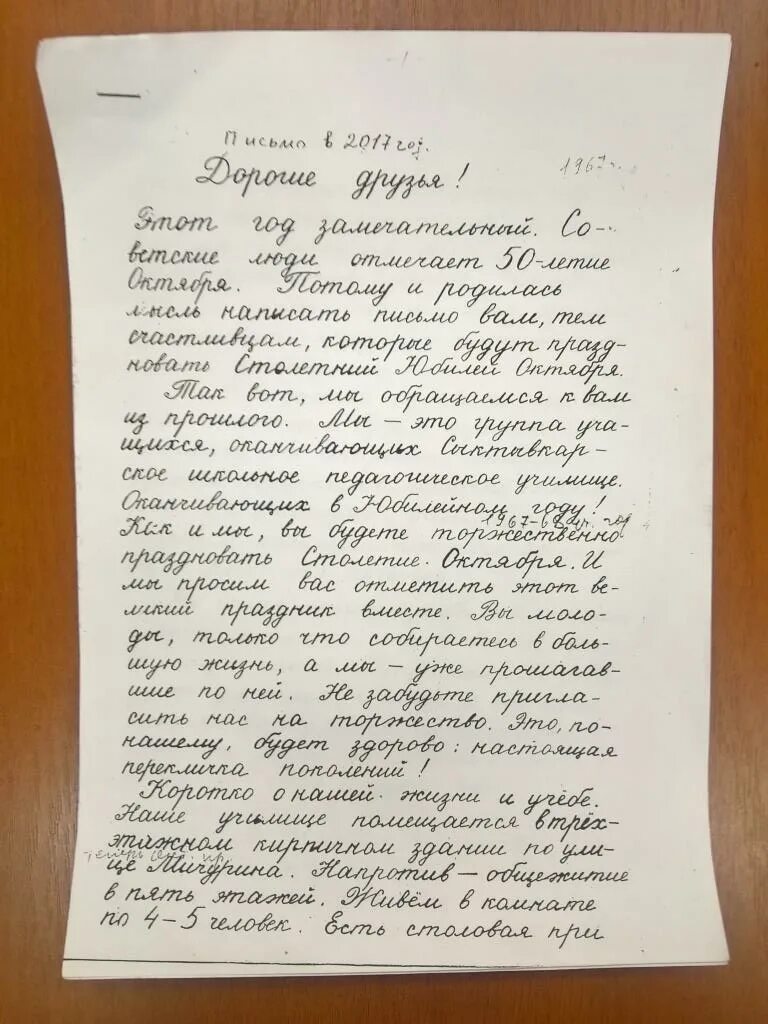 Письмо в 2017 год.
1967 г.
Дорогие друзья!
Этот год замечательный. Со-
ветские люди отмечает 50-летие
Октября. Потому и родилась
мысль написать письмо вам, тем
счастливцам, которые будут празд-
новать Столетний Юбилей Октября.
Так вот, мы обращаемся к вам
из прошлого. Мы – это группа уча-
щихся, оканчивающих Сыктывкар-
ское школьное педагогическое училище.
Оканчивающих в Юбилейном году!
1967-68 уч. год
Как и мы, вы будете торжественно
праздновать Столетие Октября. И
мы просим вас отметить этот ве-
ликий праздник вместе. Вы моло-
ды, только что собираетесь в боль-
шую жизнь, а мы – уже прошагав-
шие по ней. Не забудьте пригла-
сить нас на торжество. Это, по-
нашему, будет здорово: настоящая
перекличка поколений!
Коротко о нашей жизни и учёбе.
Наше училище помещается в трёх-
этажном кирпичном здании по ули-
теперь пр.
це Мичурина. Напротив – общежитие
в пять этажей. Живём в комнате
по 4-5 человек. Есть столовая при